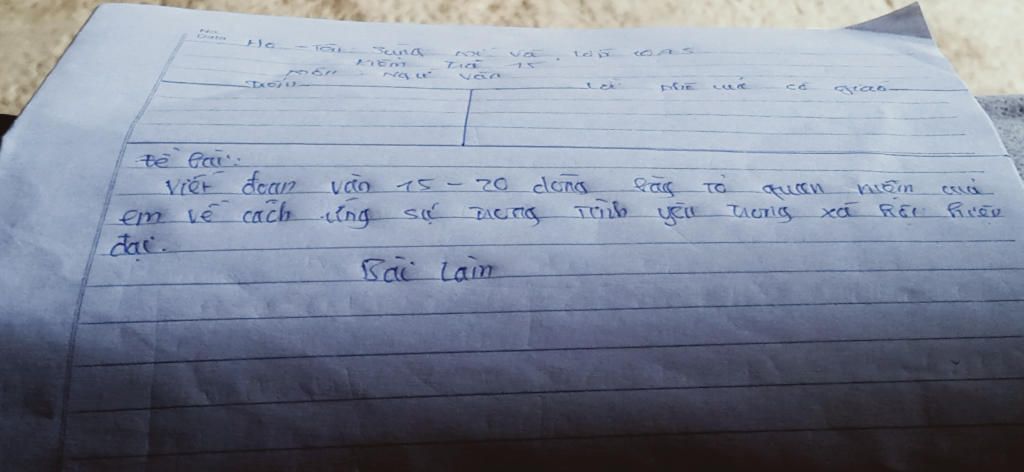 No.
Date
Họ - Tên: Sùng và. Lớp 10A5
Kiểm Tra 15
môn: Ngữ văn
Điểm Lời phê của cô giáo
Đề bài:
Viết đoạn văn 15 - 20 dòng bày tỏ quan niệm của
em về cách ứng sử trong tình yêu trong xã hội hiện
đại.
Bài làm